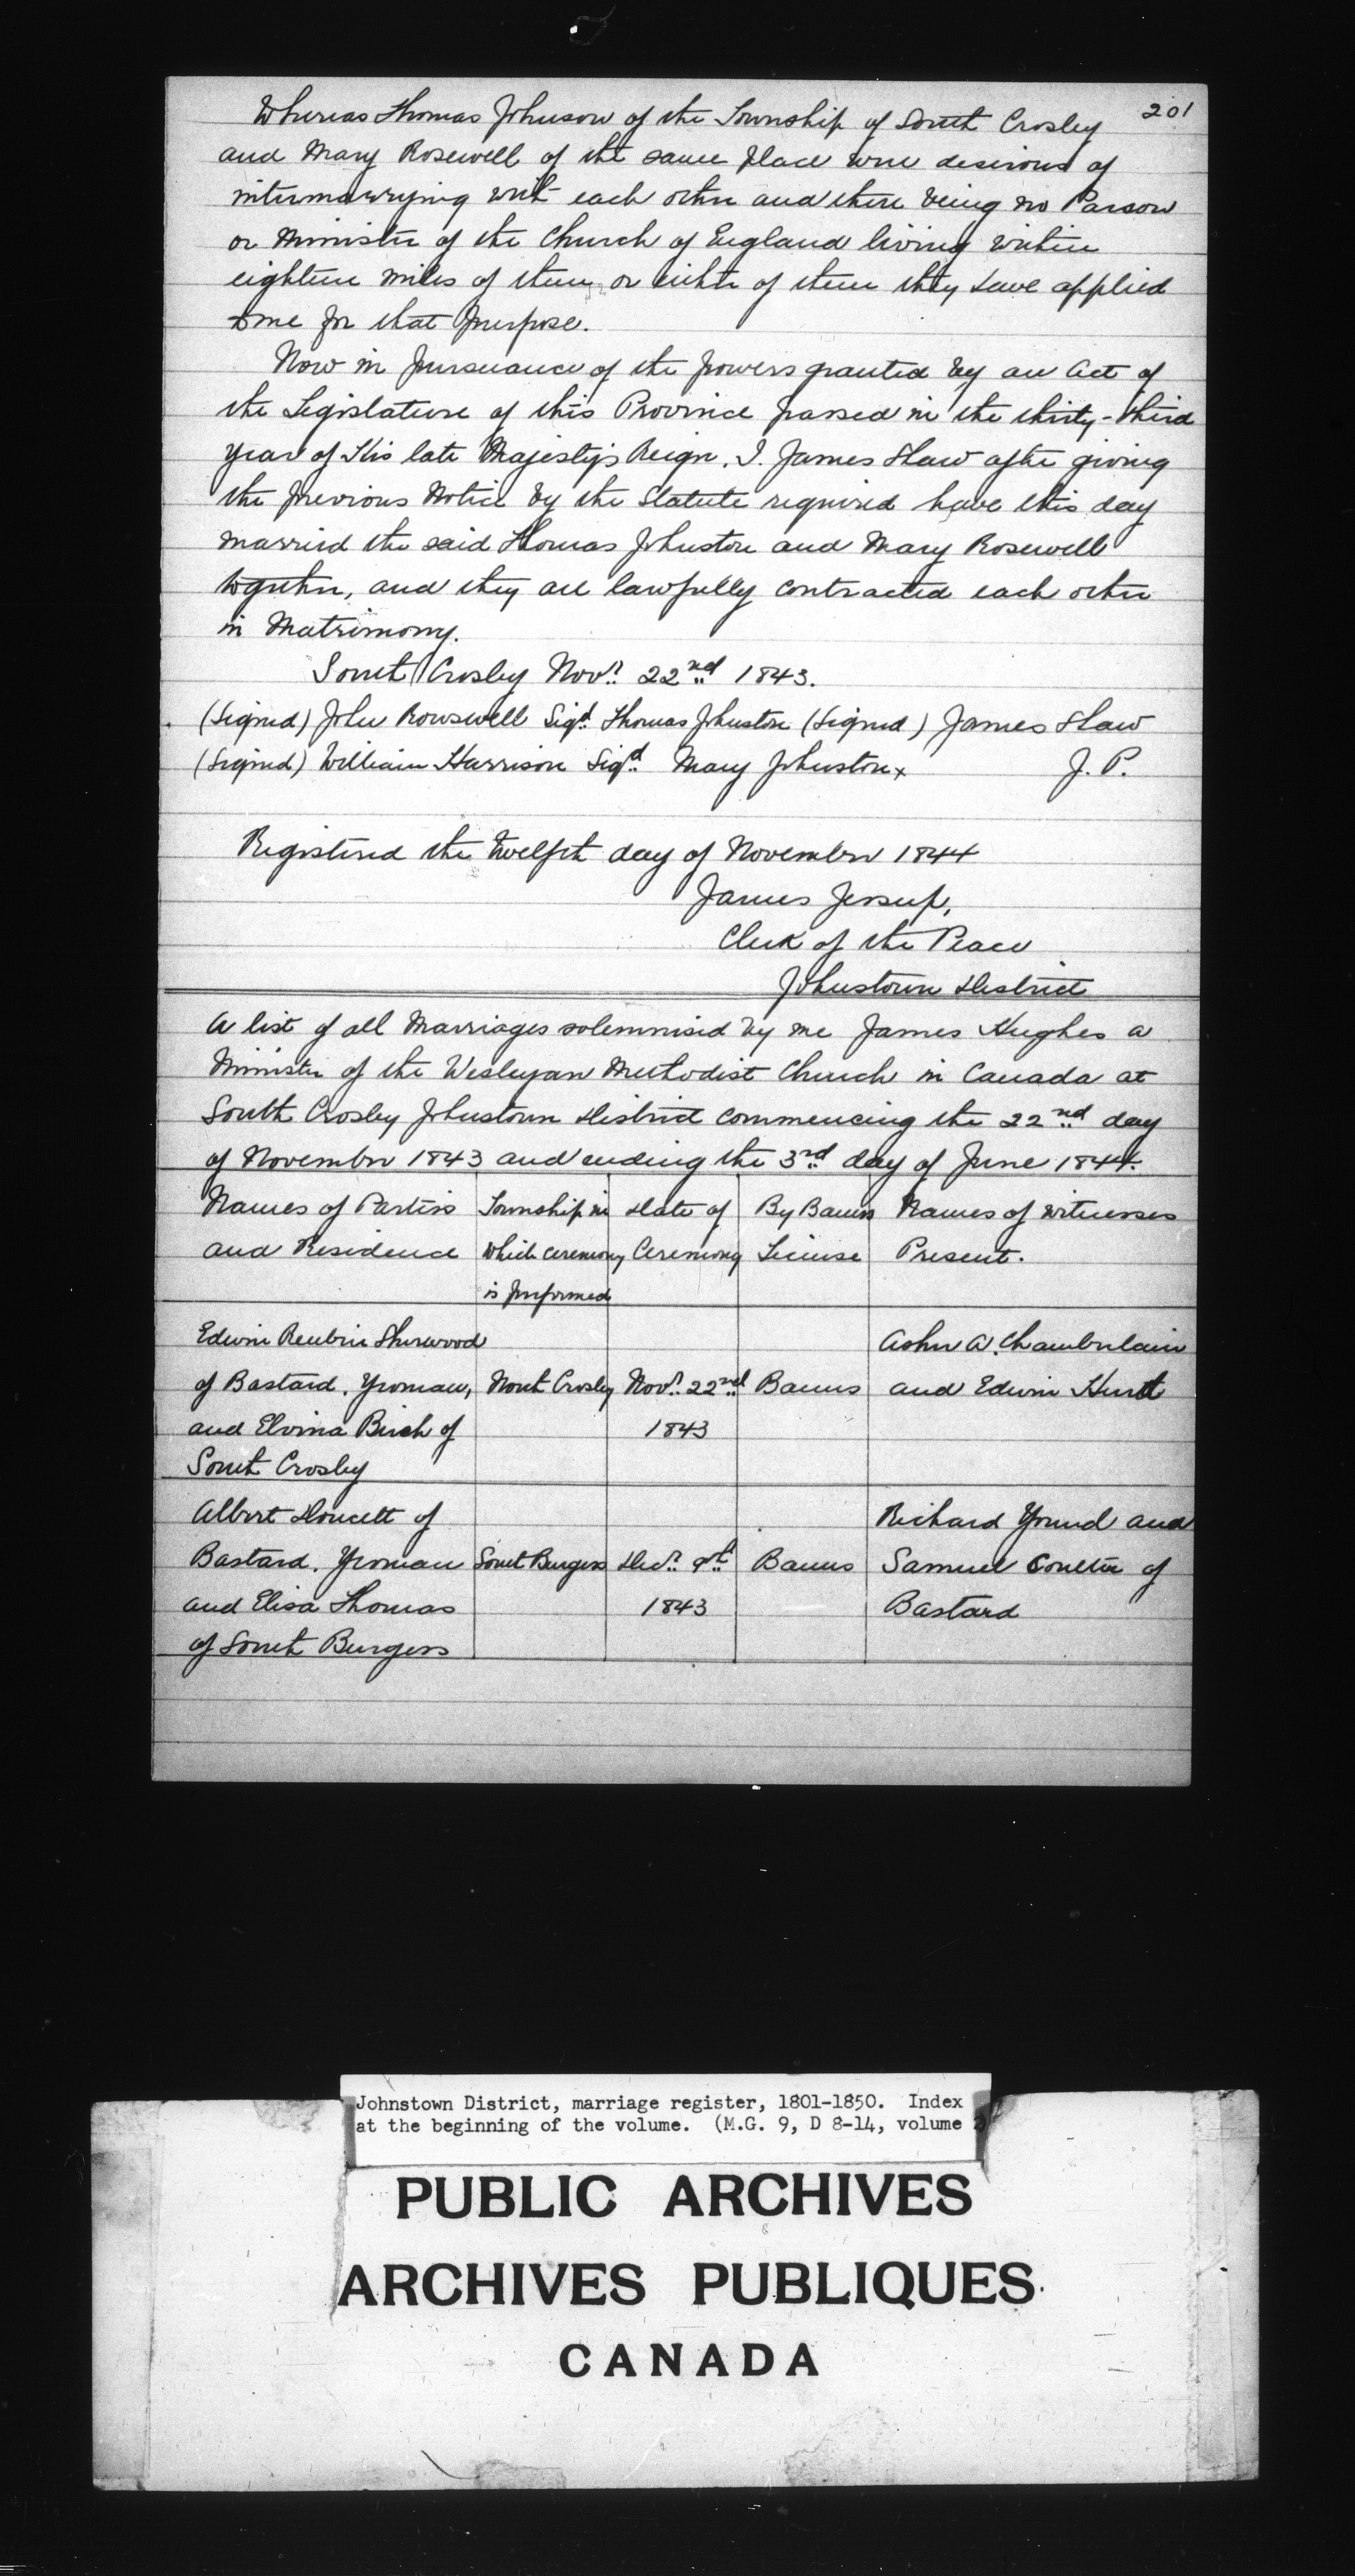 201
Whereas Thomas Johnson of the Township of South Crosby
and Mary Rosewell of the same place were desirous of
intermarrying with each other and there being no Parson
or Minister of the Church of England living within
eighteen miles of them or either of them they have applied
to me for that purpose.
Now in pursuance of the powers granted by an Act of
the Legislature of this Province passed in the thirty-third
year of His late Majesty's Reign. I. James Shaw after giving
the previous Notice by the Statute required have this day
married the said Thomas Johnston and Mary Rosewell
together, and they are lawfully contracted each other
in Matrimony.
South Crosby Novr. 22nd 1843.
(Signed) John Rowswell Sigd. Thomas Johnston (Signed) James Shaw
(Signed) William Harrison Sigd. Mary Johnston x J. P.
Registered the twelfth day of November 1844
James Jessup,
Clerk of the Peace
Johnstown District
A list of all Marriages solemnised by me James Hughes a
Minister of the Wesleyan Methodist Church in Canada at
South Crosby Johnstown District commencing the 22nd day
of November 1843 and ending the 3rd day of June 1844.
Names of Parties Township in Date of By Banns Names of witnesses
and Residence which ceremony Ceremony License Present.
is performed
Edwin Reubin Sherwood Asher A. Chamberlain
of Bastard. Yeoman, North Crosby Novr. 22nd Banns and Edwin Hunt
and Elvina Birch of 1843
South Crosby
Albert of Richard Yound and
Bastard. Yeoman South Burgess Decr. 9th Banns Samuel Coulter of
and Elisa Thomas 1843 Bastard
of South Burgess
Johnstown District, marriage register, 1801-1850. Index
at the beginning of the volume. (M.G. 9, D 8-14, volume
PUBLIC ARCHIVES
ARCHIVES PUBLIQUES
CANADA